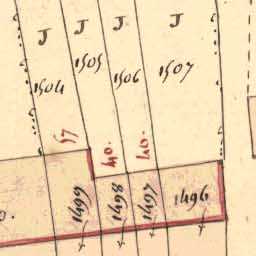 J J J J
1504 1505 1506 1507
57 40. 40.
1499 1498 1497 1496